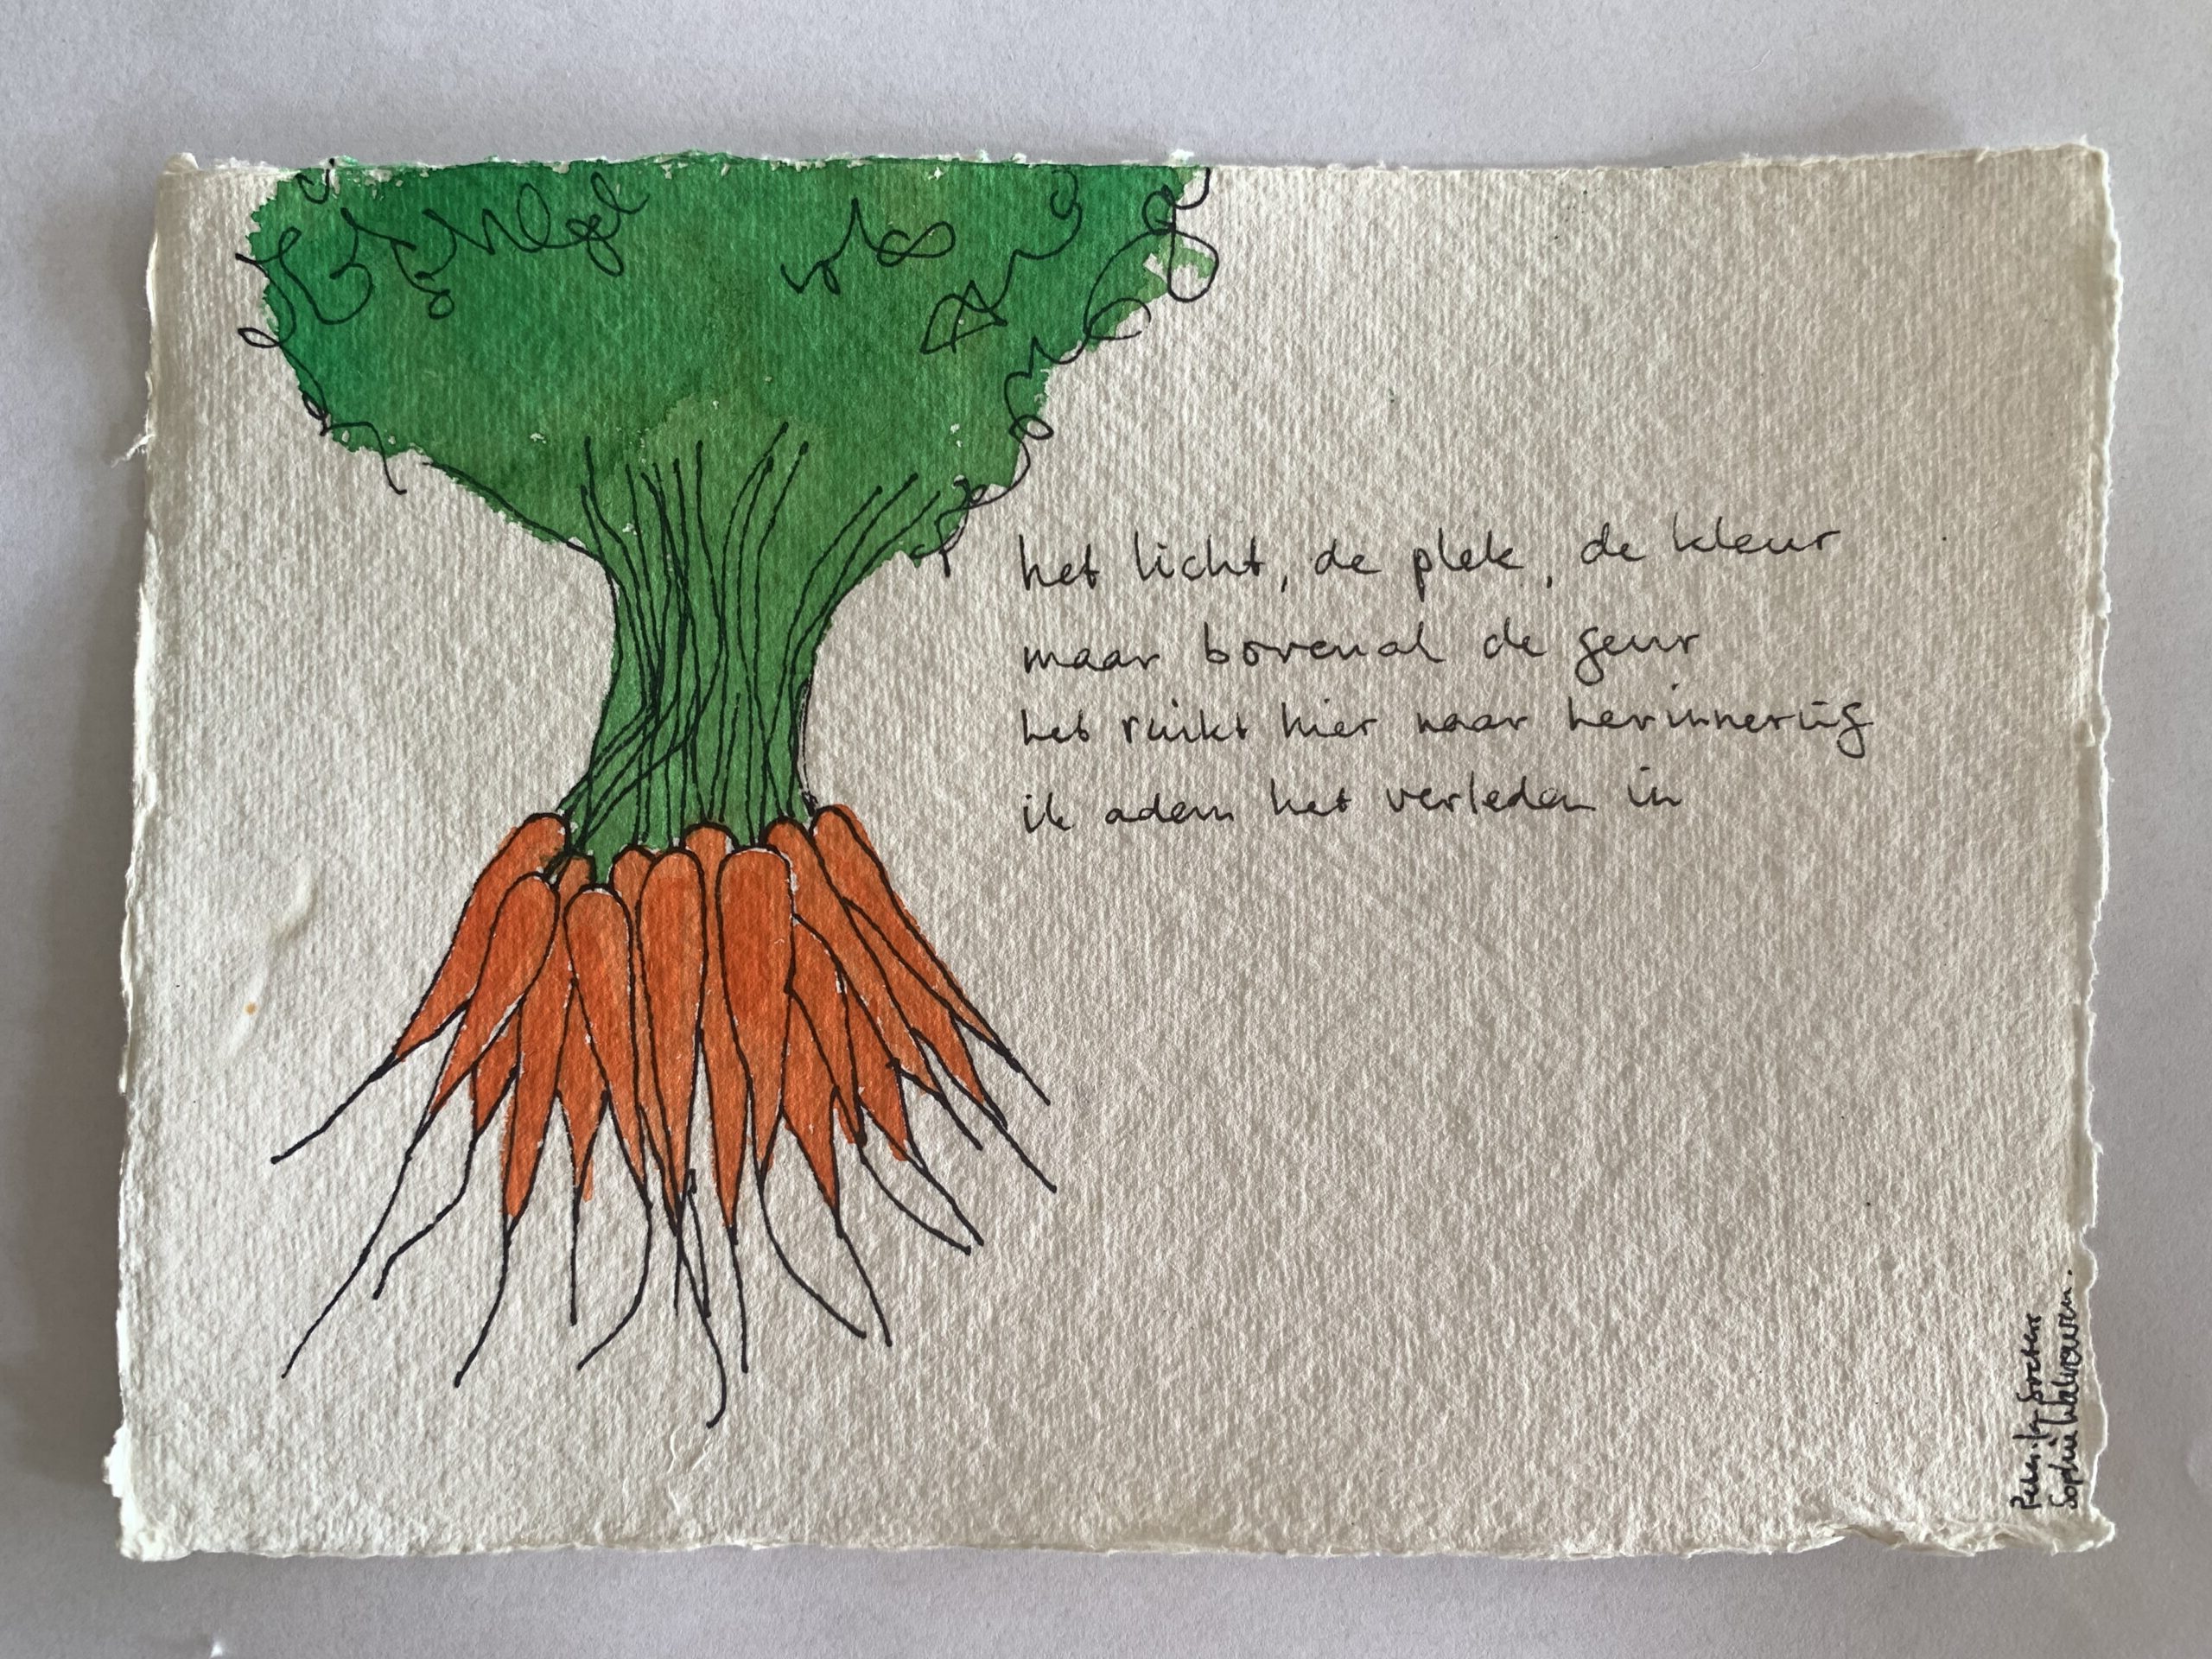 het licht, de plek, de kleur
maar bovenal de geur
het ruikt hier naar herinnering
ik adem het verleden in
Sophie